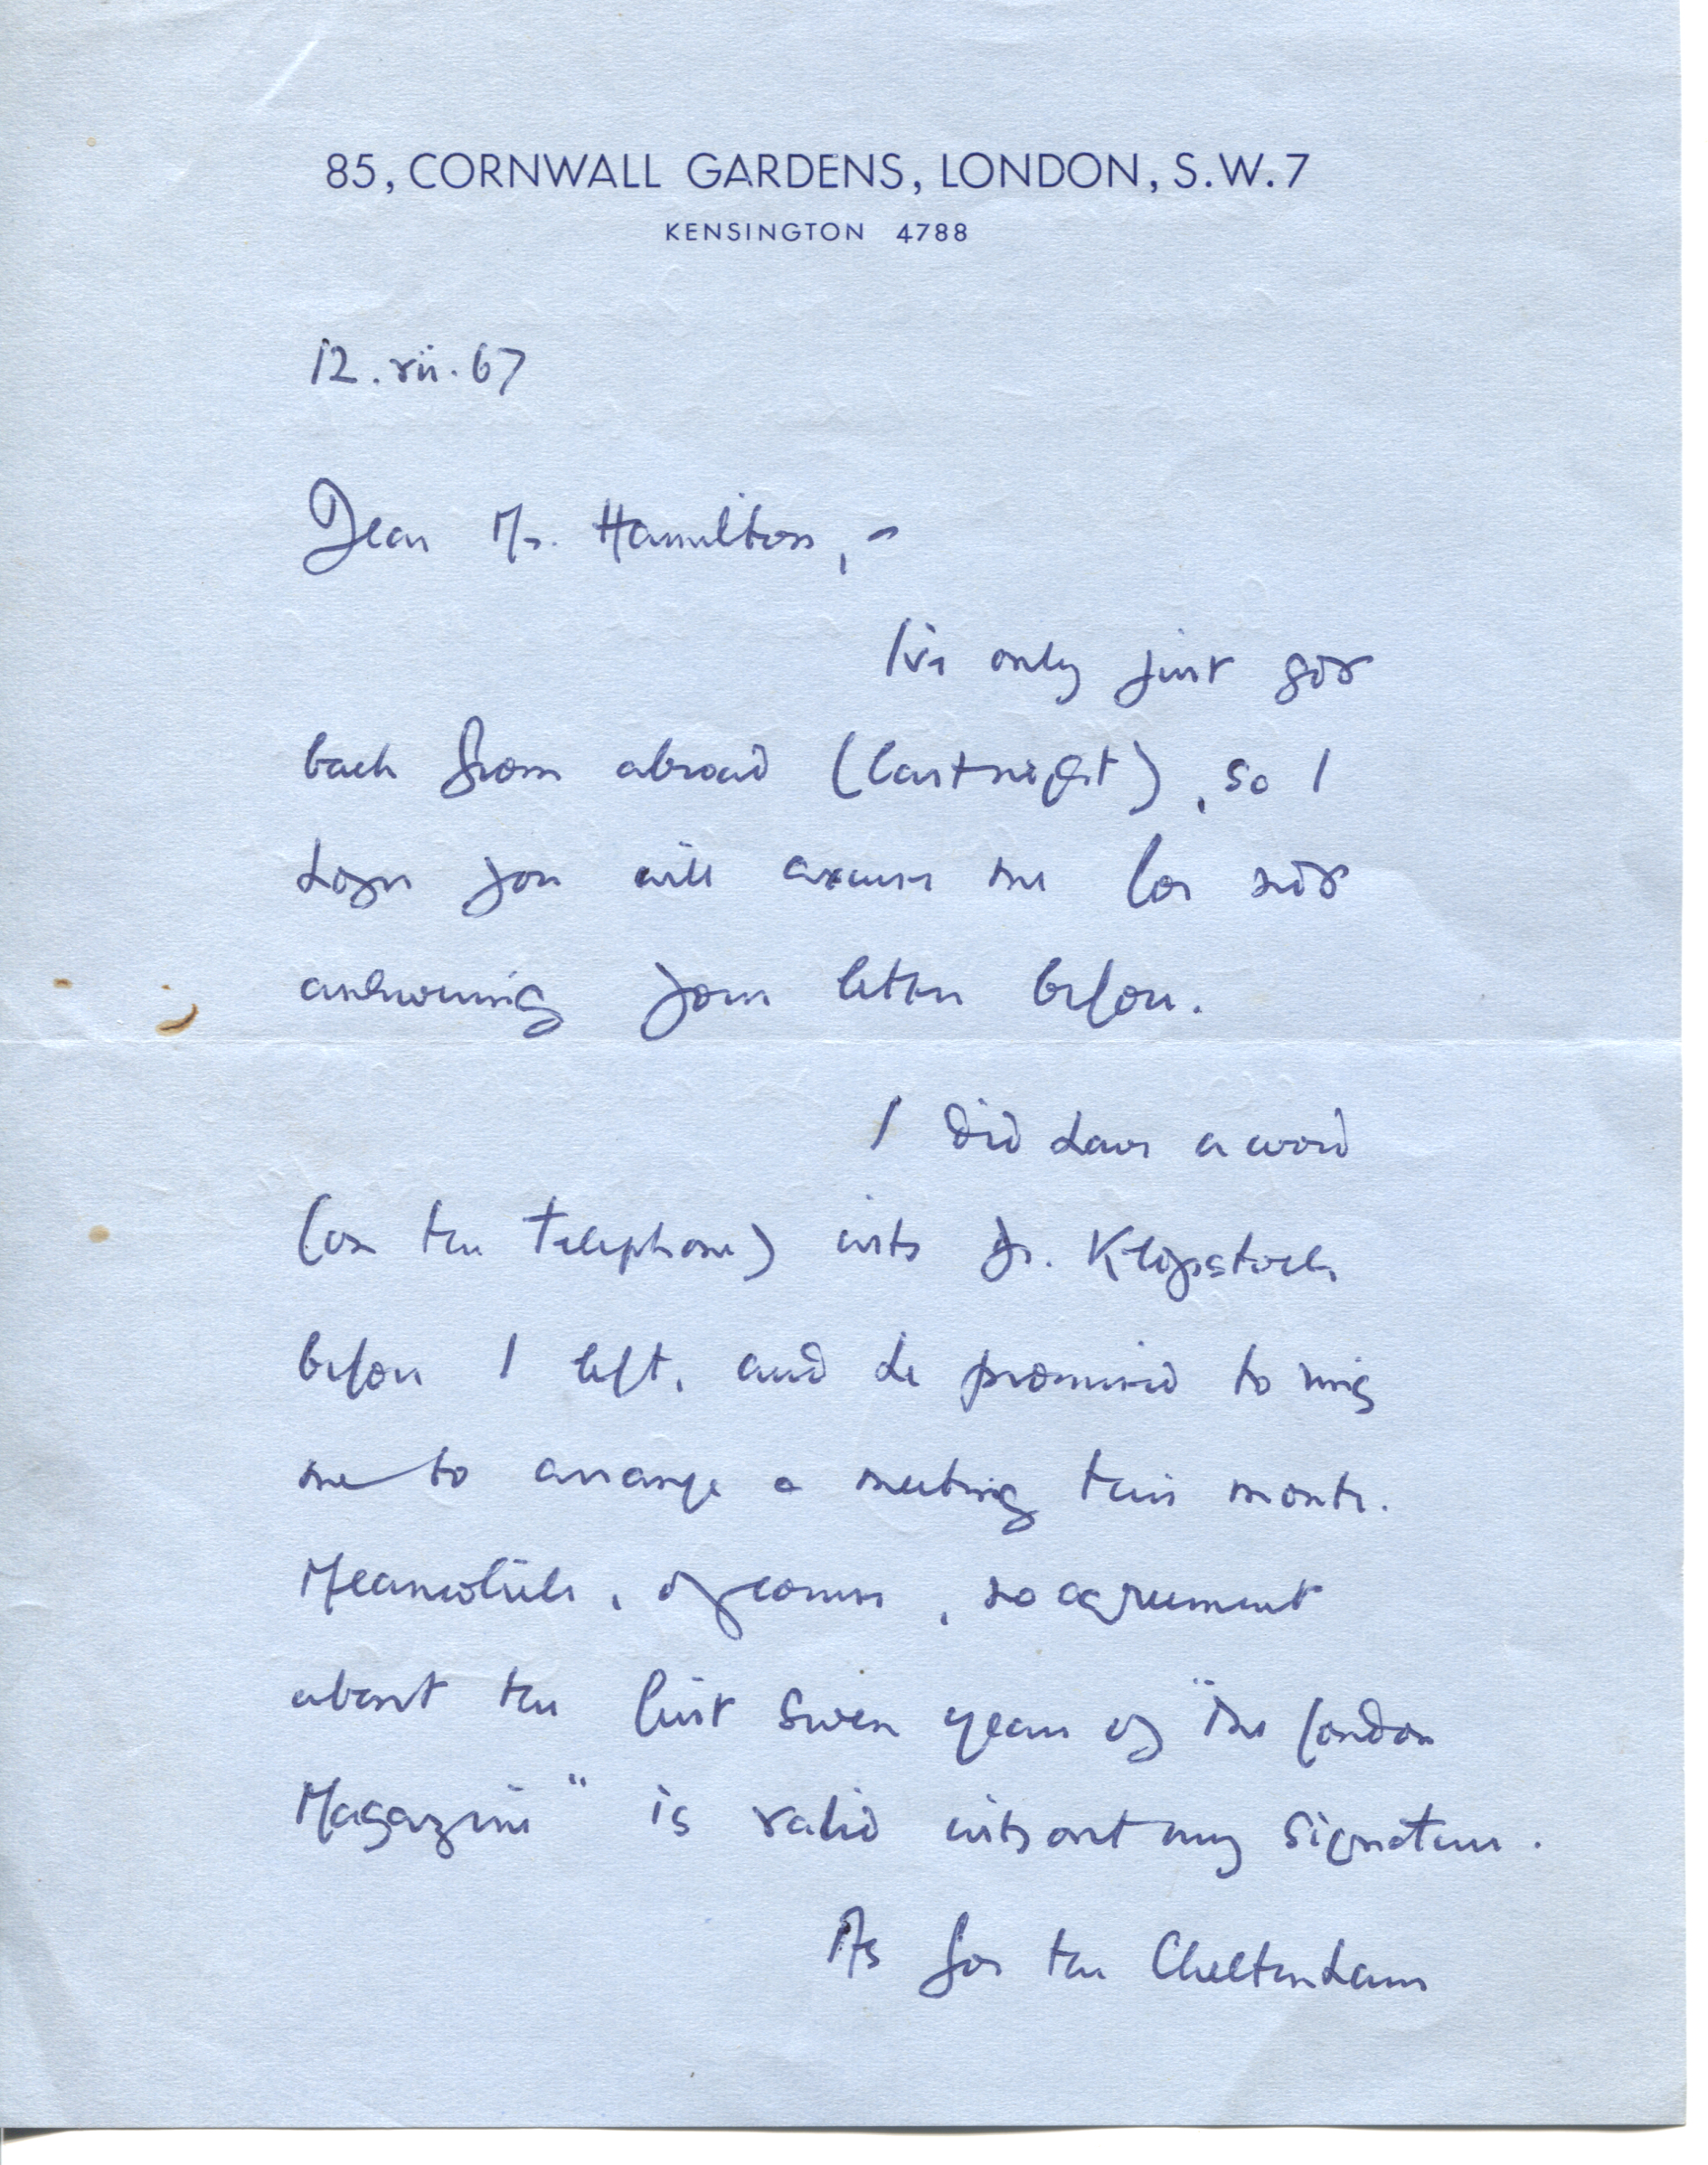 85, CORNWALL GARDENS, LONDON, S.W.7
KENSINGTON 4788
12.vii.67
Dear Mr. Hamilton, –
I've only just got
back from abroad (last night), so I
hope you will excuse me for not
answering your letter before.
I did have a word
(on the telephone) with Dr. Klopstock
before I left, and he promised to ring
me to arrange a meeting this month.
Meanwhile, of course, no agreement
about the first seven years of "The London
Magazine" is valid without my signature.
As for the Cheltenham